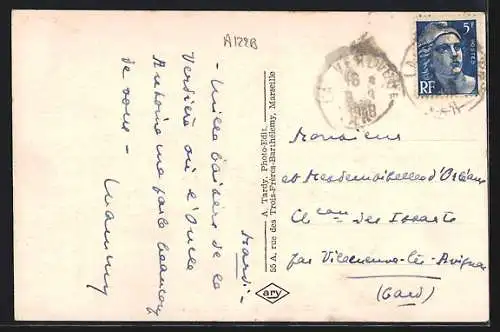 A129B
Mardi -
- Mille baisers de la
Verdière où l'Oncle
Antoine me parle beaucoup
de vous - Mammy
A. Tardy, Photo-Edit.
55 A, rue des Trois-Frères-Barthélemy, Marseille
ary
LA VERDIERE
16
8
5F
POSTES
RF
Monsieur
et Mesdemoiselles d'Orléans
Ch^eau des Issarts
par Villeneuve-lès-Avignon
(Gard)